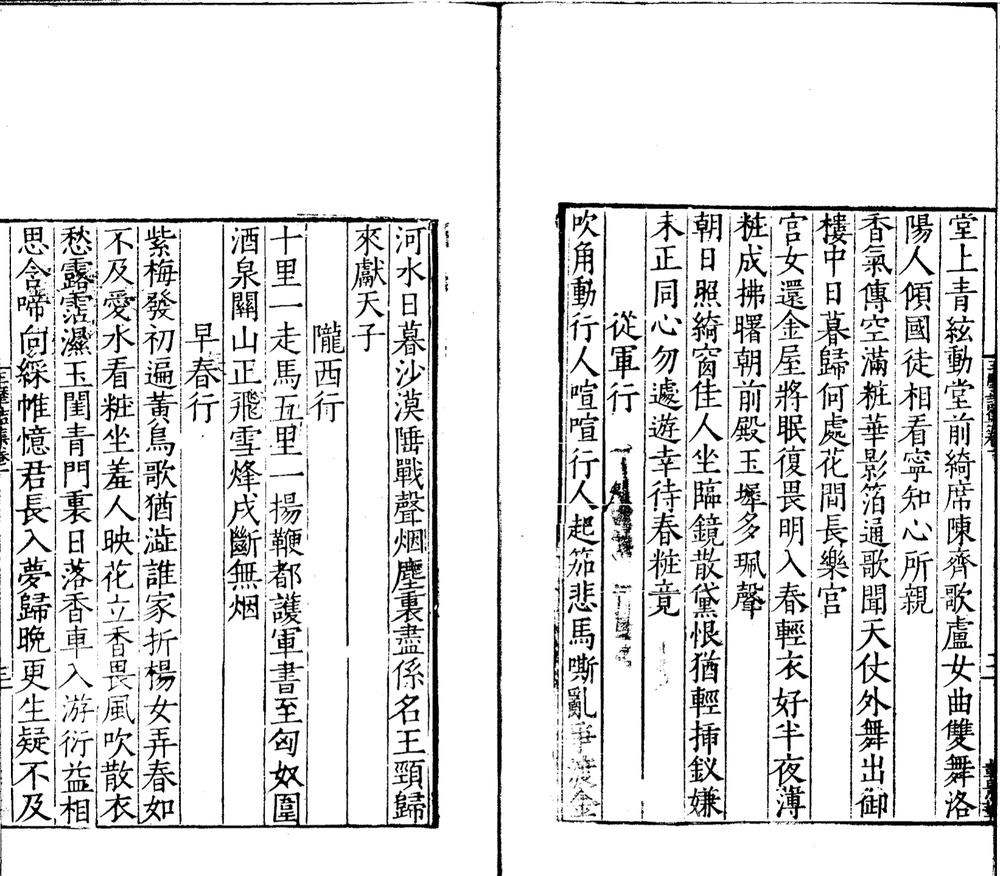 堂上青絃動堂前綺席陳齊歌盧女曲雙舞洛
陽人傾國徒相看寧知心所親
香氣傳空滿粧華影箔通歌聞天仗外舞出御
樓中日暮歸何處花間長樂宮
宮女還金屋將眠復畏明入春輕衣好半夜薄
粧成拂曙朝前殿玉墀多珮聲
朝日照綺窗佳人坐臨鏡散黛恨猶輕揷釵嫌
未正同心勿遽遊幸待春粧竟
從軍行
吹角動行人喧喧行人起笳悲馬嘶亂爭渡金
河水日暮沙漠陲戰聲烟塵裏盡係名王頸歸
來獻天子
隴西行
十里一走馬五里一揚鞭都護軍書至匈奴圍
酒泉關山正飛雪烽戍斷無烟
早春行
紫梅發初遍黃鳥歌猶澁誰家折楊女弄春如
不及愛水看粧坐羞人映花立香畏風吹散衣
愁露霑濕玉閨青門裏日落香車入游衍益相
思含啼向綵帷憶君長入夢歸晚更生疑不及